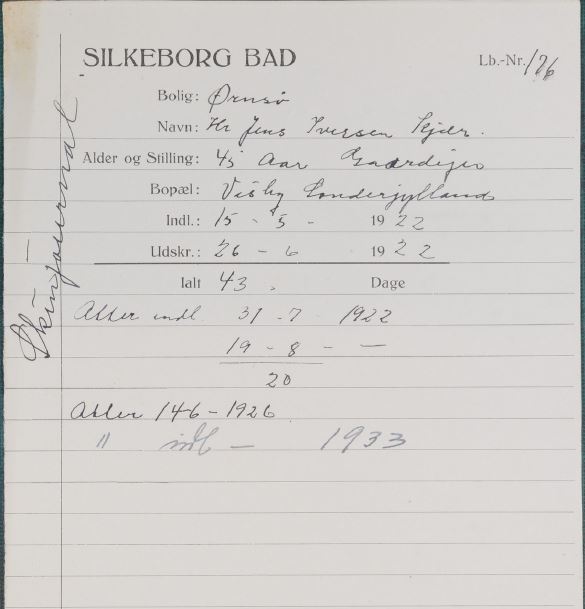 SILKEBORG BAD
Lb.-Nr. 126
Bolig: Ørnsø
Navn: Hr Jens Iversen Kjær.
Alder og Stilling: 45 Aar Gaardejer
Bopæl: Visby Sønderjylland
Indl.: 15 - 5 - 1922
Udskr.: 26 - 6 1922
Ialt 43. Dage
Atter indl. 31 - 7 - 1922
19 - 8 - —
20
Atter 146 - 1926
" indl — 1933